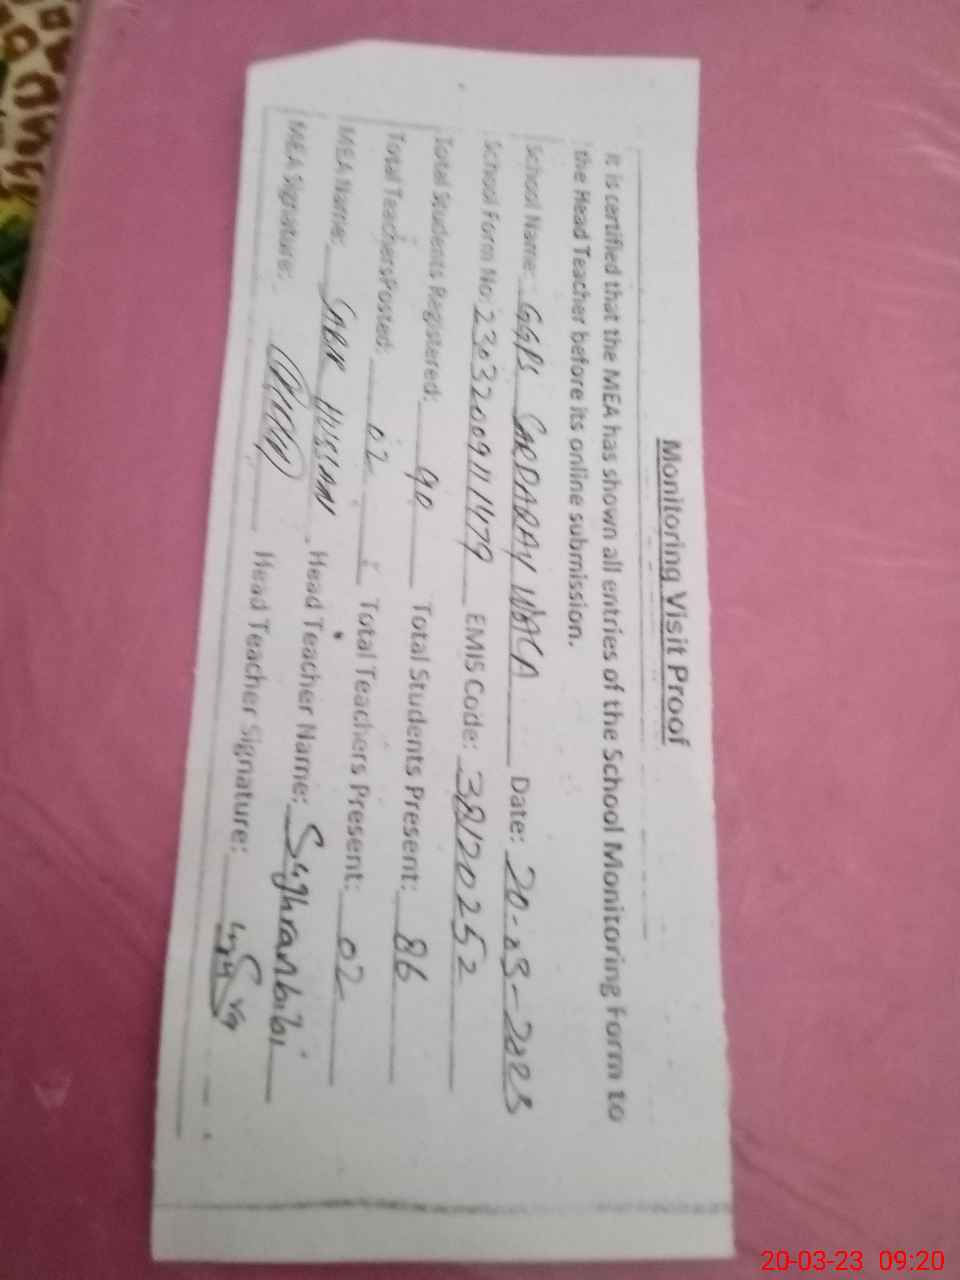 Monitoring Visit Proof
It is certified that the MEA has shown all entries of the School Monitoring Form to
the Head Teacher before its online submission.
School Name: GGPS SARDARAY WACA Date: 20-03-2023
School Form No: 23032009111479 EMIS Code: 38120252
Total Students Registered: 90 Total Students Present: 86
Total Teachers Posted: 02 Total Teachers Present: 02
MEA Name: SABIR HUSSAIN Head Teacher Name: Sughranbibi
MEA Signature: Head Teacher Signature:
20-03-23 09:20